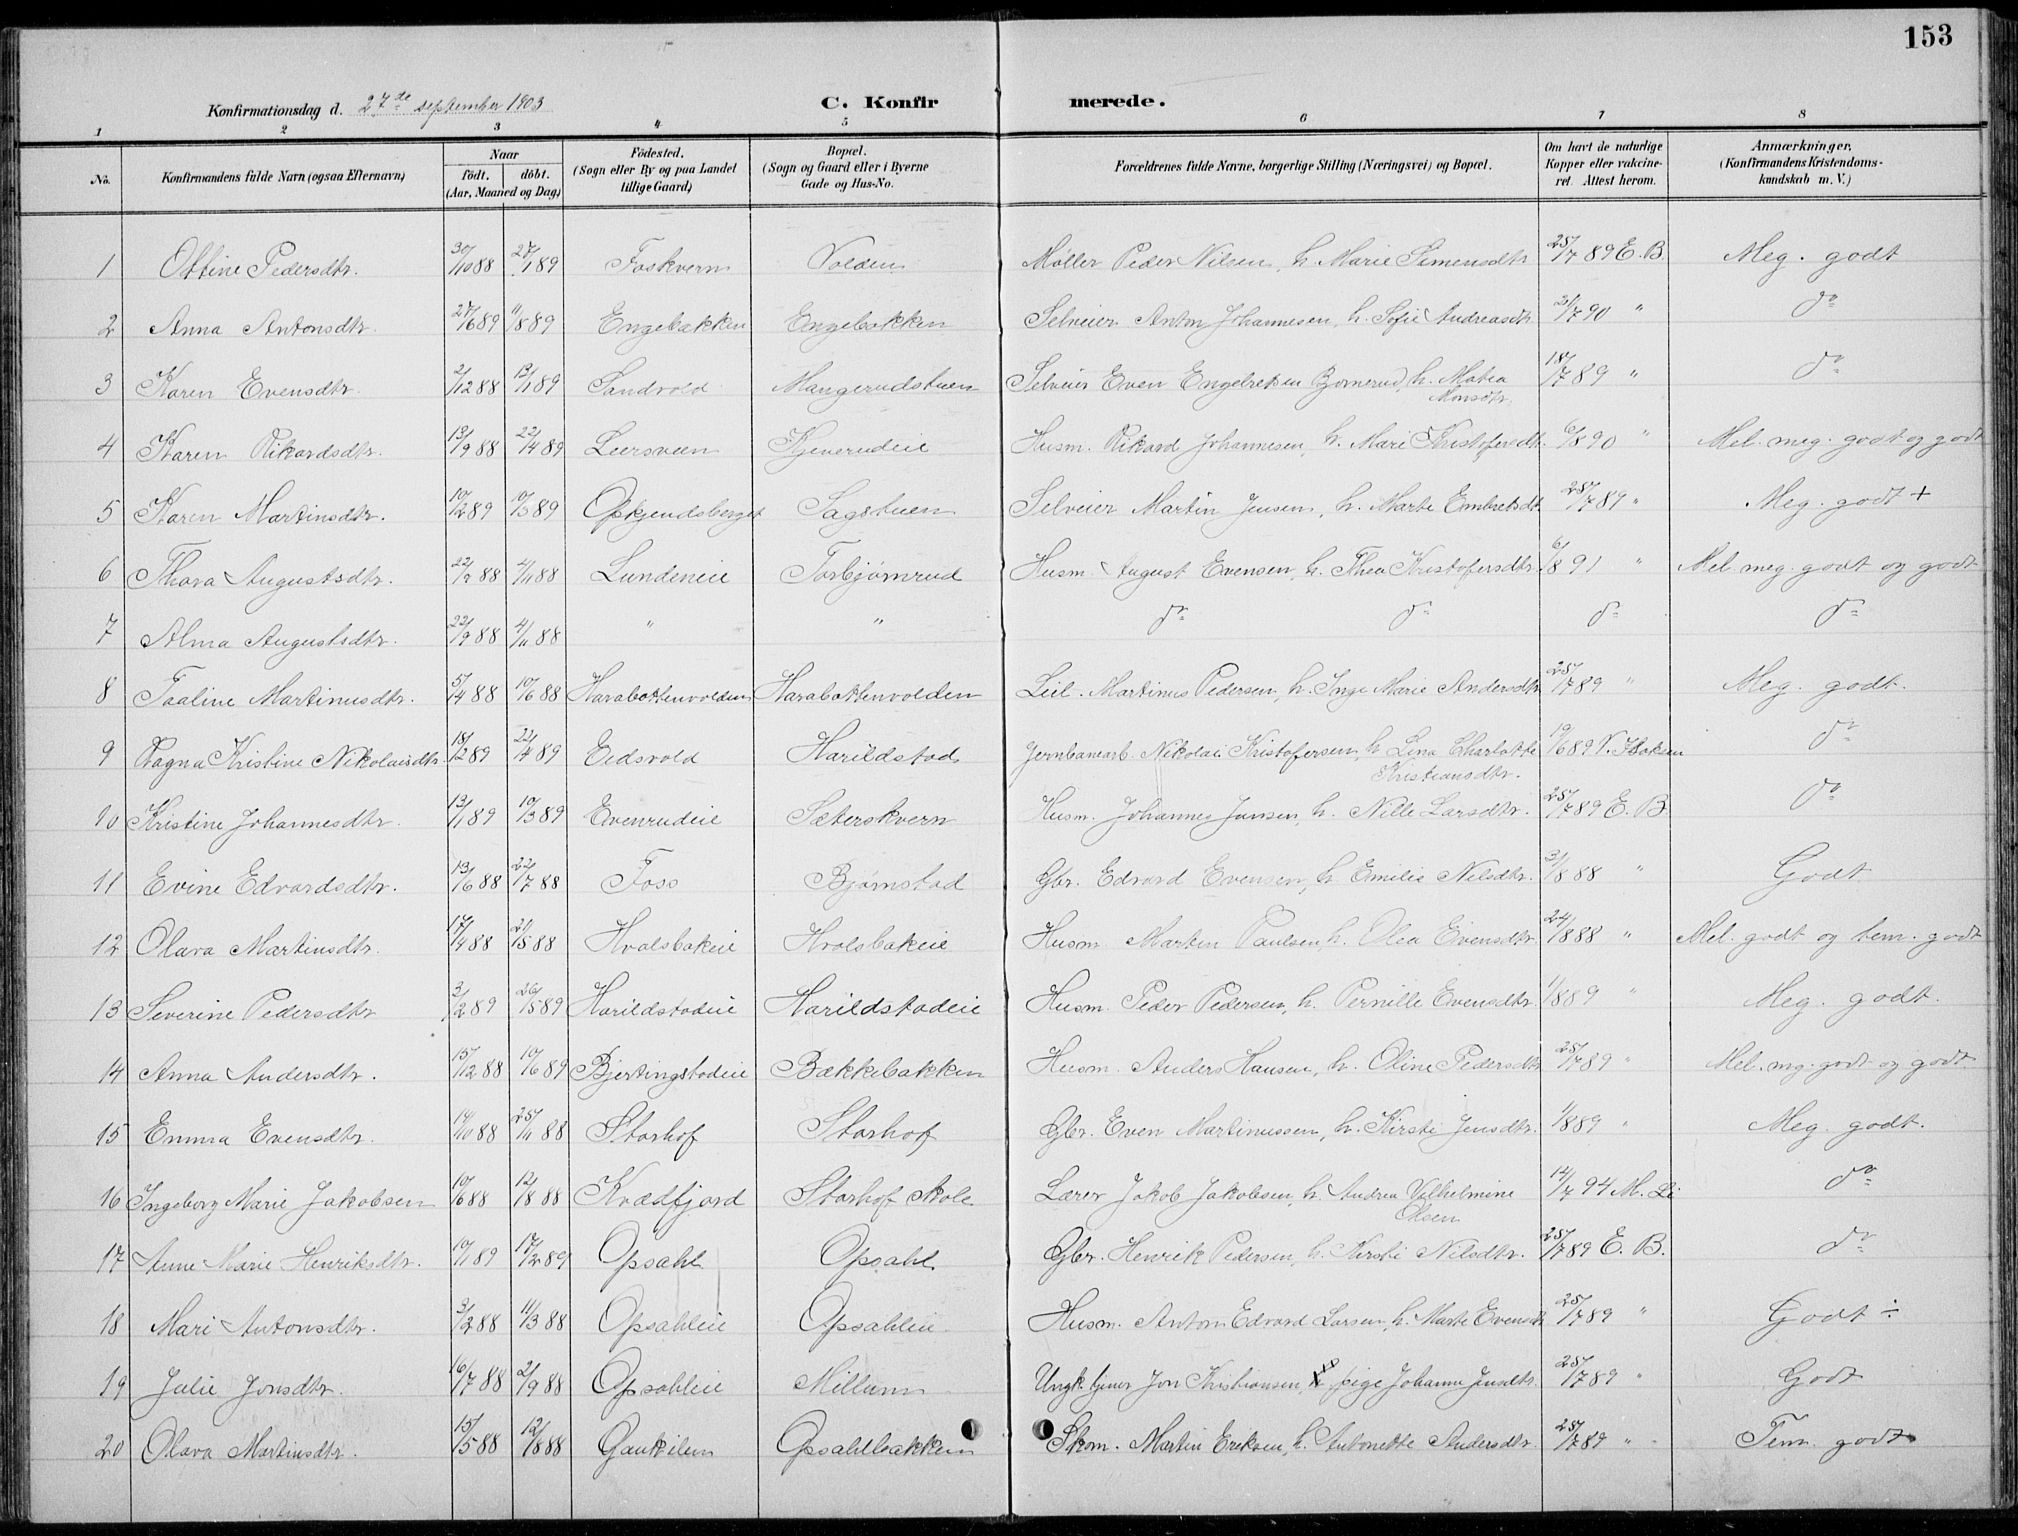 153
Konfirmationsdag d. 27de september 1903 C. Konfirmerede.
1 2 3 4 5 6 7 8
No. Konfirmandens fulde Navn (ogsaa Efternavn) Naar født. døbt. (Aar, Maaned og Dag) Fødested. (Sogn eller By og paa Landet tillige Gaard) Bopæl. (Sogn og Gaard eller i Byerne Gade og Hus-No. Forældrenes fulde Navne, borgerlige Stilling (Næringsvei) og Bopæl. Om havt de naturlige Kopper eller vakcineret. Attest herom. Anmærkninger. (Konfirmandens Kristendomskundskab m. V.)
1 Ottine Pedersdtr. 30/10 88 27/1 89 Foskvern Volden Møller Peder Nilsen, h. Marie Simensdtr 25/7 89 E. B. Meg. godt
2 Anna Antonsdtr. 27/6 89 11/8 89 Engebakken Engebakken Selveier Anton Johannesen, h. Sofie Andreasdtr 21/7 90 " do
3 Karen Evensdtr. 2/12 88 13/1 89 Sandvold Mangerudstuen Selveier Even Engebretsen Bjørnerud, h. Matea Monsdtr. 18/7 89 " do
4 Karen Rikardsdtr. 13/9 88 22/4 89 Leersveen Kjeverudeie Husm. Rikard Johannesen, h. Mari Kristofersdt. 6/8 90 " Mel. meg. godt og godt
5 Karen Martinsdtr. 10/2 89 10/3 89 Opkjendsberget Sagstuen Selveier Martin Jensen, h. Marte Embretsdt. 25/7 89 " Meg. godt +
6 Thora Augustsdtr. 22/9 88 4/11 88 Lundeneie Torbjørnrud Husm. August Evensen, h. Thea Kristofersdtr. 6/8 91 " Mel meg. godt og godt
7 Alma Augustsdtr. 22/9 88 4/11 88 " " do do do do
8 Paaline Martinusdtr. 5/4 88 10/6 88 Harabottenvolden Harabottenvolden Leil. Martinus Pedersen, h. Inge Marie Andersdtr 25/7 89 " Meg. godt.
9 Ragna Kristine Nikolaisdtr. 18/2 89 22/4 89 Eidsvold Harildstad Jernbanearb. Nikolai Kristofersen, h. Lina Charlotte Kristiansdtr. 19/6 89 do
10 Kristine Johannesdtr. 13/1 89 10/3 89 Evenrudeie Sæterskvern Husm. Johannes Jansen, h. Nille Larsdtr. 25/7 89 E. B. do
11 Evine Edvardsdtr. 13/6 88 22/7 88 Foss Bjørnstad Gbr. Edvard Evensen, h. Emilie Nilsdtr. 31/8 88 " Godt
12 Olava Martinsdtr. 17/4 88 21/5 88 Hvalsbakeie Hvalsbakeie Husm. Martin Paulsen, h. Olea Evensdtr. 24/8 88 " Mel. godt og tem. godt
13 Severine Pedersdtr 3/2 89 26/5 89 Harildstadeie Harildstadeie Husm. Peder Pedersen, h. Pernille Evensdtr. 1/8 89 " Meg. godt.
14 Anna Andersdtr. 15/12 88 10/6 89 Bjertingstadeie Bækkebakken Husm. Anders Hansen, h. Oline Pedersdtr 25/7 89 " Mel. mg. godt og godt.
15 Emma Evensdtr. 14/10 88 25/11 88 Storhof Storhof Gbr. Even Martinussen, h. Kirsti Jensdtr. 1/8 89 " Meg. godt.
16 Ingeborg Marie Jakobsen 10/6 88 12/8 88 Kvædfjord Storhof skole Lærer Jakob Jakobsen, h. Andrea Vilhelmine Olsen 14/7 94 M. Li do
17 Anne Marie Henriksdtr. 10/1 89 17/2 89 Opsahl Opsahl Gbr. Henrik Pedersen, h. Kirsti Nilsdtr. 25/7 89 E. B. do
18 Mari Antonsdtr. 3/2 88 11/3 88 Opsahleie Opsahleie Husm. Anton Edvard Larsen, h. Marte Evensdt 25/7 89 " Godt ÷
19 Julie Jonsdtr. 16/7 88 2/9 88 Opsahleie Millum Ungk. tjener Jon Kristiansen, pige Johanne Jensdtr. 25/7 89 " Godt
20 Olava Martinsdtr. 15/5 88 12/8 88 Gaukilen Opsahlbakken Skom. Martin Eriksen, h. Antonette Andersdtr. 25/7 89 " Tem. godt